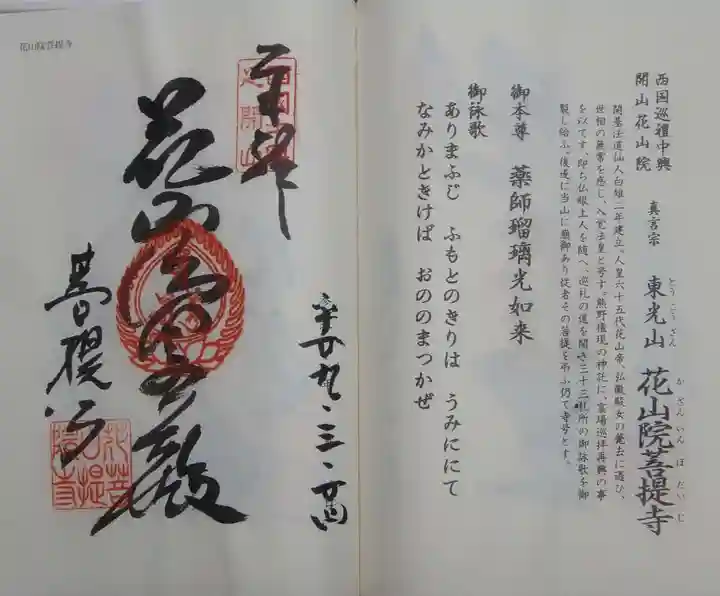 西国巡禮中興
開山花山院
真言宗
東光山
とうこうざん
花山院菩提寺
かざんいんぼだいじ
開基法道仙人白雉二年建立。人皇六十五代花山帝、弘徽殿女の薨去に遇ひ、
世相の無常を感じ、入覚法皇と号す。熊野権現の神託に、霊場巡拝再興の事
を以てす、即ち仏眼上人を随へ、巡礼の道を開き三十三札所の御詠歌を御
製し給ふ。後遂に当山に崩御あり従者その菩提を弔ふ仍て寺号とす。
御本尊 薬師瑠璃光如来
御詠歌
ありまふじ ふもとのきりは うみににて
なみかときけば おののまつかぜ
花山院菩提寺
奉拝
花山法皇殿
菩提寺